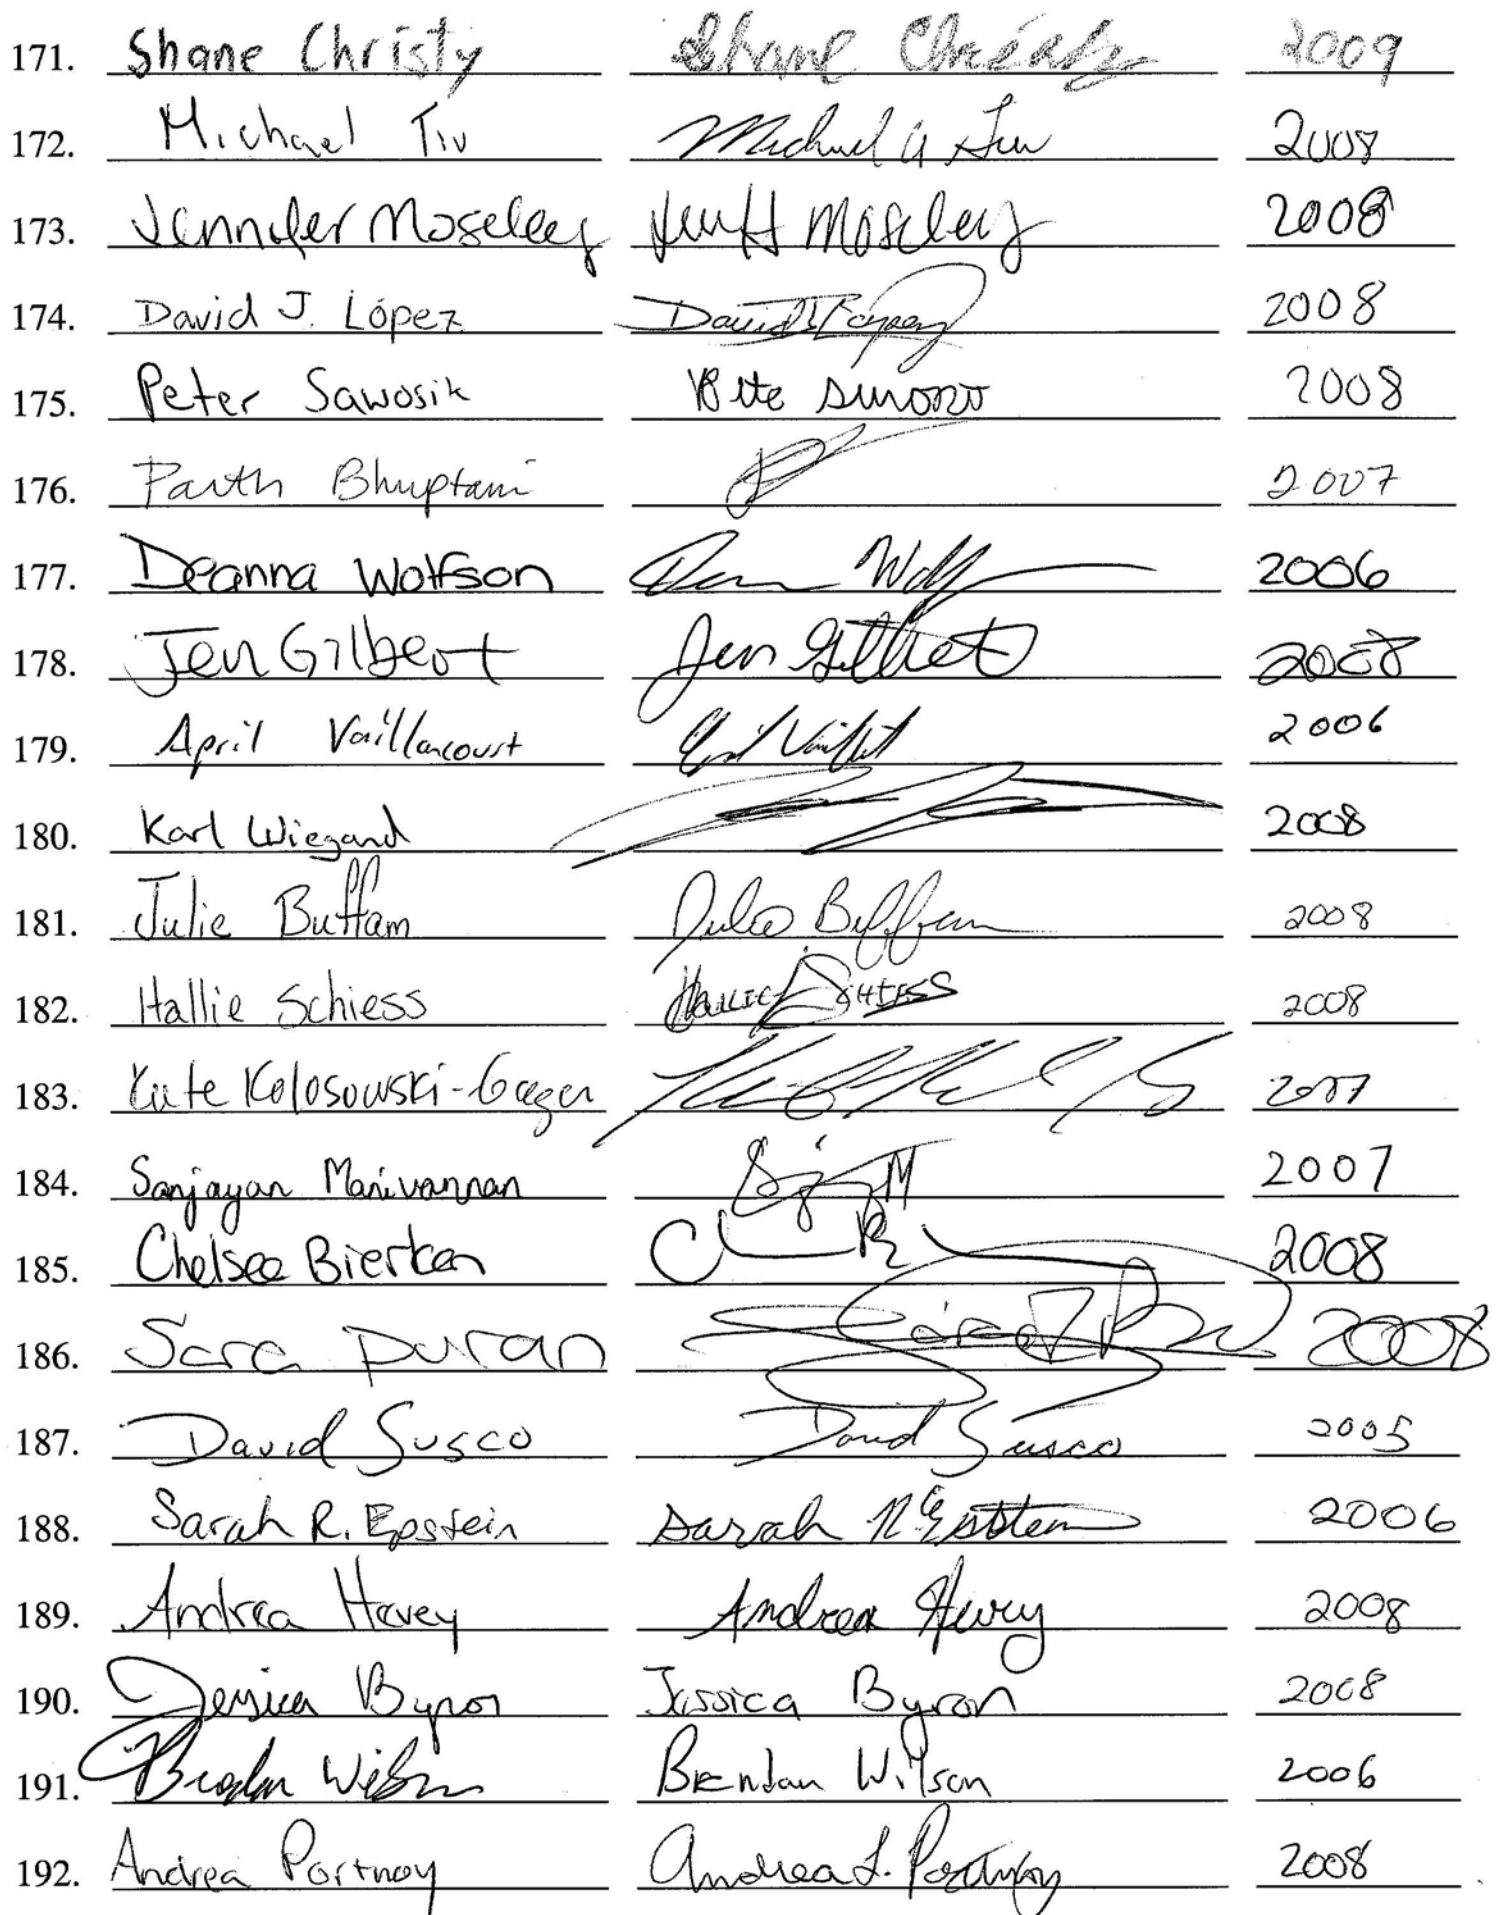 171. Shane Christy Shane Christy 2009
172. Michael Tiv Michael A Tiv 2008
173. Jennifer Moseley Jenn H Moseley 2008
174. David J. López David J López 2008
175. Peter Sawosik Pete 2008
176. Parth Bhuptani 2007
177. Deanna Wolfson 2006
178. Jen Gilbert Jen Gilbert 2008
179. April Vaillancourt 2006
180. Karl Wiegand 2008
181. Julie Buffam Julie Buffam 2008
182. Hallie Schiess Hallie Schiess 2008
183. Kate Kolosowski-Gager 2007
184. Sanjayan Manivannan 2007
185. Chelsea Bierken 2008
186. Sara Duran 2008
187. David Susco David Susco 2005
188. Sarah R. Epstein Sarah R Epstein 2006
189. Andrea Hevey Andrea Hevey 2008
190. Jessica Byron Jessica Byron 2008
191. Brendan Wilson Brendan Wilson 2006
192. Andrea Portnoy Andrea L. Portnoy 2008